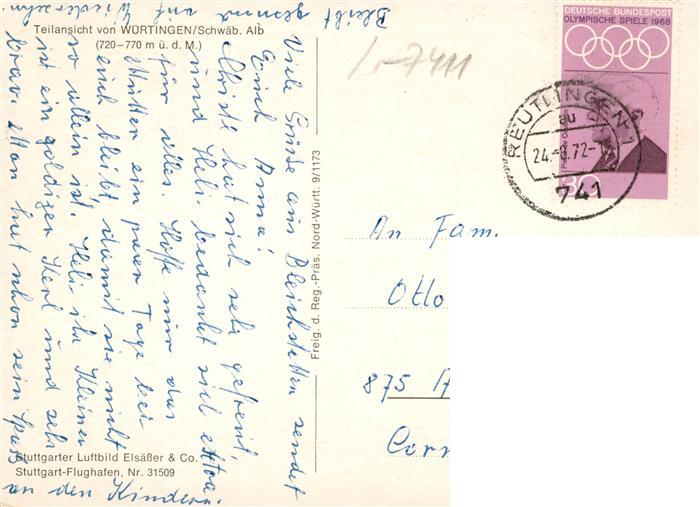 Teilansicht von WÜRTINGEN/Schwäb. Alb
(720–770 m ü. d. M.)
Viele Grüße aus Bleichstetten sendet
Euch Anna!
hat sich sehr gefreut,
und Heli. bedankt sich
für alles. Hoffe nur das
Mutter ein paar Tage bei
euch bleibt damit sie nicht
so allein ist. Heli ihr Kleiner
ist ein goldiger Kerl und sehr
brav. Man hat schon sein Spass
an den Kindern.
Bleibt gesund auf Wiedersehn
Stuttgarter Luftbild Elsäßer & Co.
Stuttgart-Flughafen, Nr. 31509
Freig. d. Reg.-Präs. Nord-Württ. 9/1173
7411
DEUTSCHE BUNDESPOST
OLYMPISCHE SPIELE 1968
30
REUTLINGEN 1
au
24.-8.72-1
741
An Fam.
Otto
875